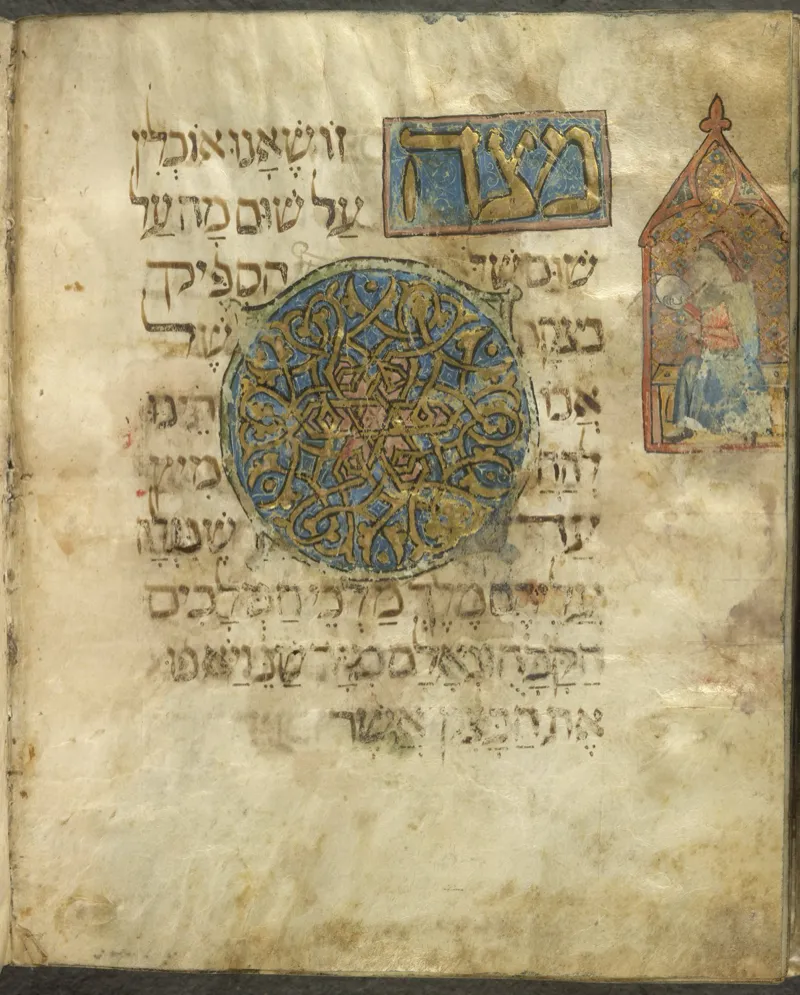 מצה זוֹ שֶׁאָנוּ אוֹכְלִין
עַל שׁוּם מָה עַל
שׁוּם שֶׁלֹּ הִסְפִּיק
בצקן שֶׁל
אֲבוֹ תֵינוּ
לְהַחֲ מִיץ
עַד שֶׁנִּגְלָה
עֲלֵיהֶם מֶלֶךְ מַלְכֵי הַמְּלָכִים
הקבה שֶׁנ וַיֹּאפוּ
אֶת הַבָּצֵק אֲשֶׁר